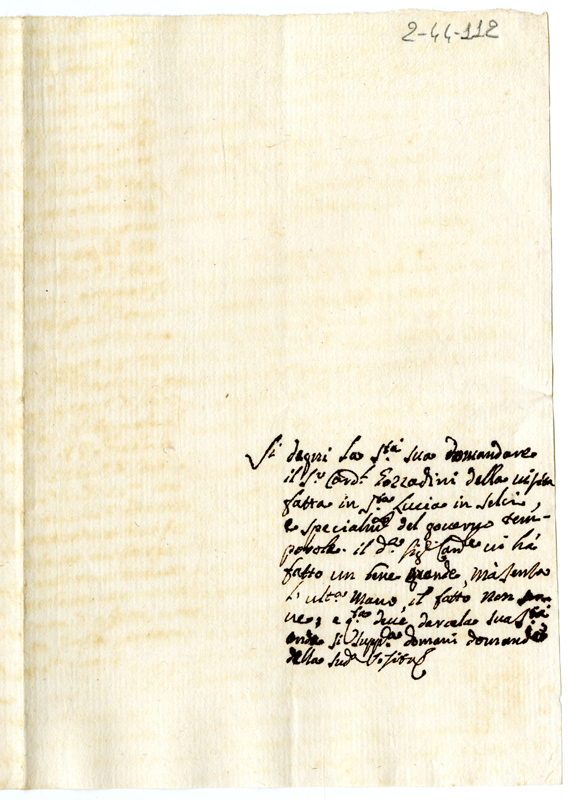 2-44-112
Si degni La Stà sua domandare
il Sr Cardl Gozzadini della visita
fatta in Sta Lucia in selci,
e specialmte del governo tem-
porale. il do Sigr Carde vi hà
fatto un bene grande, mà senza
l'ulta mano, il fatto non ser-
ve; e qta deve darcela sua Stà
onde si suppca domani domandi
della suda Visita